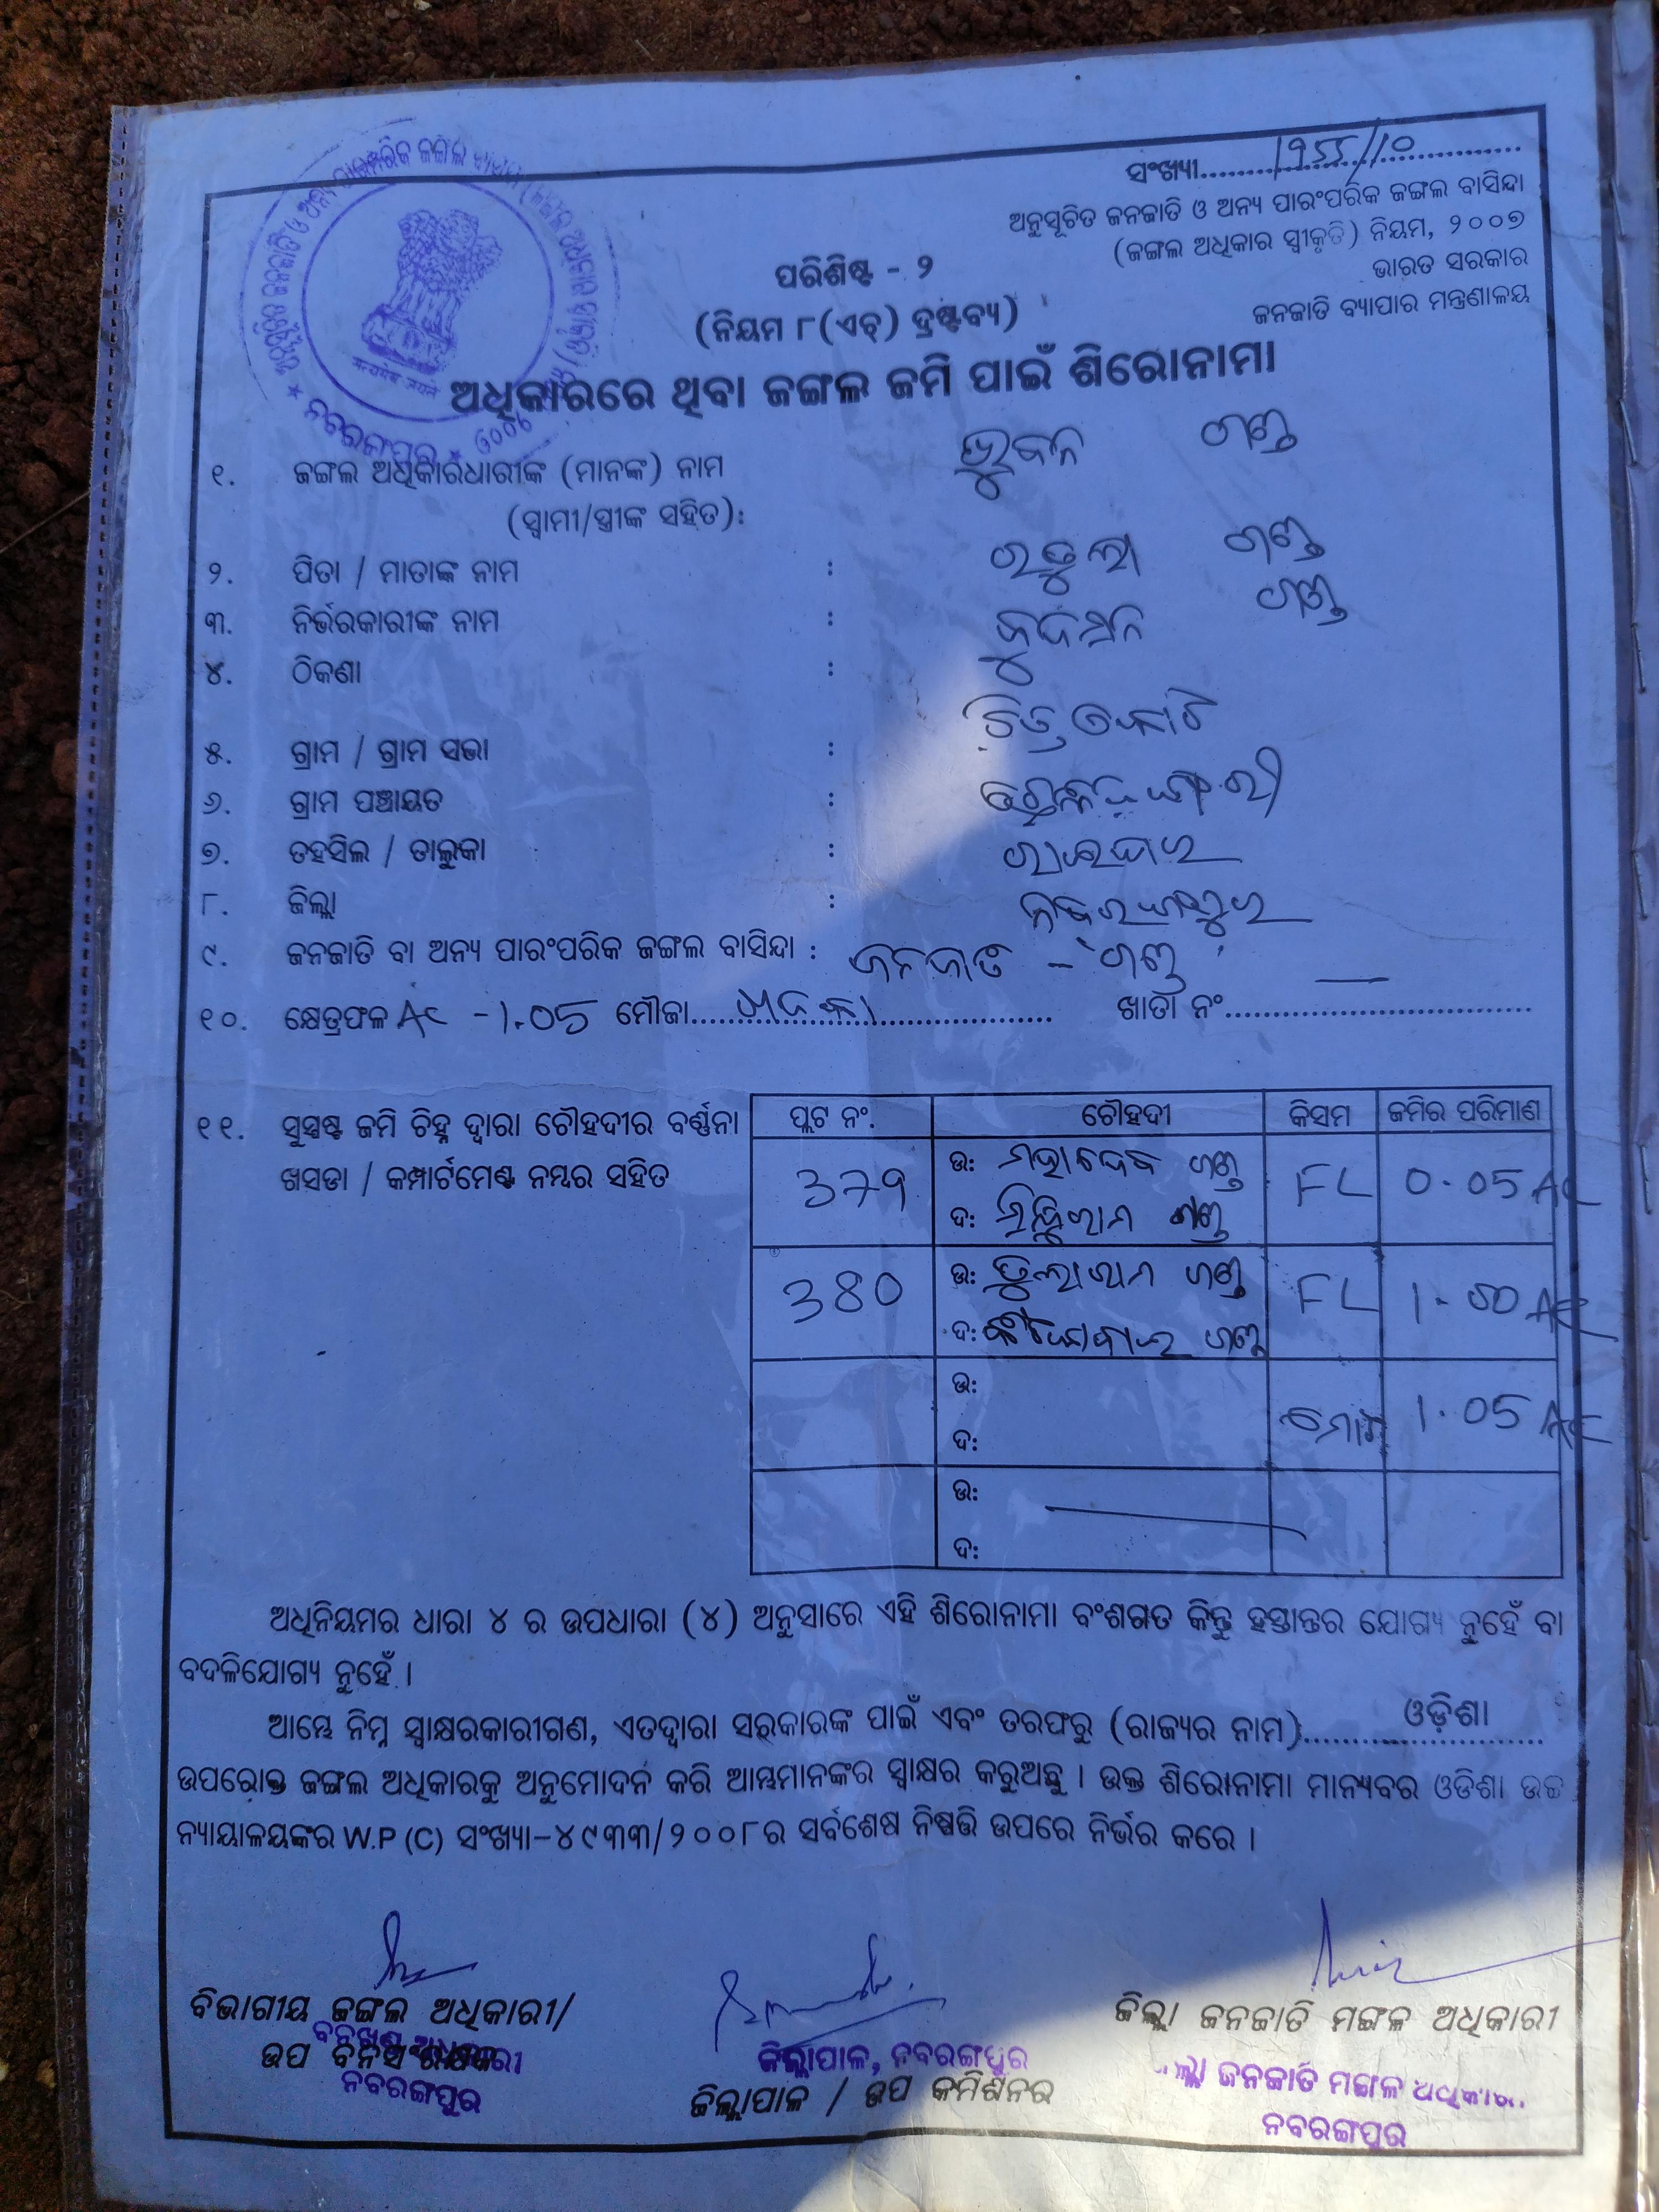 ସଂଖ୍ୟା
ଅନୁସୂଚିତ ଜନଜାତି ଓ ଅନ୍ୟ ପାରଂପରିକ ଜଙ୍ଗଲ ବାସିନ୍ଦା
(ଜଙ୍ଗଲ ଅଧିକାର ସ୍ୱୀକୃତି) ନିୟମ, ୨୦୦୭
ଭାରତ ସରକାର
ଜନଜାତି ବ୍ୟାପାର ମନ୍ତ୍ରଣାଳୟ
ପରିଶିଷ୍ଟ - ୨
(ନିୟମ ୮(ଏଚ୍) ଦ୍ରଷ୍ଟବ୍ୟ)
ଅଧିକାରରେ ଥିବା ଜଙ୍ଗଲ ଜମି ପାଇଁ ଶିରୋନାମା
୧. ଜଙ୍ଗଲ ଅଧିକାରଧାରୀଙ୍କ (ମାନଙ୍କ) ନାମ ଗଣ୍ଡ
(ସ୍ୱାମୀ/ସ୍ତ୍ରୀଙ୍କ ସହିତ):
୨. ପିତା / ମାତାଙ୍କ ନାମ : ଗଣ୍ଡ
୩. ନିର୍ଭରକାରୀଙ୍କ ନାମ : ଗଣ୍ଡ
୪. ଠିକଣା :
୫. ଗ୍ରାମ / ଗ୍ରାମ ସଭା :
୬. ଗ୍ରାମ ପଞ୍ଚାୟତ :
୭. ତହସିଲ / ତାଲୁକା : ରାଇଘର
୮. ଜିଲ୍ଲା : ନବରଙ୍ଗପୁର
୯. ଜନଜାତି ବା ଅନ୍ୟ ପାରଂପରିକ ଜଙ୍ଗଲ ବାସିନ୍ଦା : ଜନଜାତି - ଗଣ୍ଡ
୧୦. କ୍ଷେତ୍ରଫଳ AC - 1.05 ମୌଜା ଖାତା ନଂ
୧୧. ସୁସ୍ପଷ୍ଟ ଜମି ଚିହ୍ନ ଦ୍ୱାରା ଚୌହଦୀର ବର୍ଣ୍ଣନା
ଖସଡା / କମ୍ପାର୍ଟମେଣ୍ଟ ନମ୍ବର ସହିତ
ପ୍ଲଟ ନଂ. ଚୌହଦୀ କିସମ ଜମିର ପରିମାଣ
379 ଉ: ମହାଦେବ ଗଣ୍ଡ FL 0.05 AC
ଦ: ଗଣ୍ଡ
380 ଉ: ତୁଲାରାମ ଗଣ୍ଡ FL 1-00 AC
ଦ: ଗଣ୍ଡ
ଉ: ମୋଟ 1.05 AC
ଦ:
ଉ:
ଦ:
ଅଧିନିୟମର ଧାରା ୪ ର ଉପଧାରା (୪) ଅନୁସାରେ ଏହି ଶିରୋନାମା ବଂଶଗତ କିନ୍ତୁ ହସ୍ତାନ୍ତର ଯୋଗ୍ୟ ନୁହେଁ ବା
ବଦଳିଯୋଗ୍ୟ ନୁହେଁ ।
ଆମ୍ଭେ ନିମ୍ନ ସ୍ୱାକ୍ଷରକାରୀଗଣ, ଏତଦ୍ୱାରା ସରକାରଙ୍କ ପାଇଁ ଏବଂ ତରଫରୁ (ରାଜ୍ୟର ନାମ) ଓଡ଼ିଶା
ଉପରୋକ୍ତ ଜଙ୍ଗଲ ଅଧିକାରକୁ ଅନୁମୋଦନ କରି ଆମ୍ଭମାନଙ୍କର ସ୍ୱାକ୍ଷର କରୁଅଛୁ । ଉକ୍ତ ଶିରୋନାମା ମାନ୍ୟବର ଓଡିଶା ଉଚ୍ଚ
ନ୍ୟାୟାଳୟଙ୍କର W.P (C) ସଂଖ୍ୟା-୪୯୩୩/୨୦୦୮ର ସର୍ବଶେଷ ନିଷ୍ପତ୍ତି ଉପରେ ନିର୍ଭର କରେ ।
ବିଭାଗୀୟ ଜଙ୍ଗଲ ଅଧିକାରୀ/
ଉପ ବନସଂରକ୍ଷକ
ନବରଙ୍ଗପୁର
ଜିଲ୍ଲାପାଳ, ନବରଙ୍ଗପୁର
ଜିଲ୍ଲାପାଳ / ଉପ କମିଶନର
ଜିଲ୍ଲା ଜନଜାତି ମଙ୍ଗଳ ଅଧିକାରୀ
ଜିଲ୍ଲା ଜନଜାତି ମଙ୍ଗଳ ଅଧିକାରୀ
ନବରଙ୍ଗପୁର